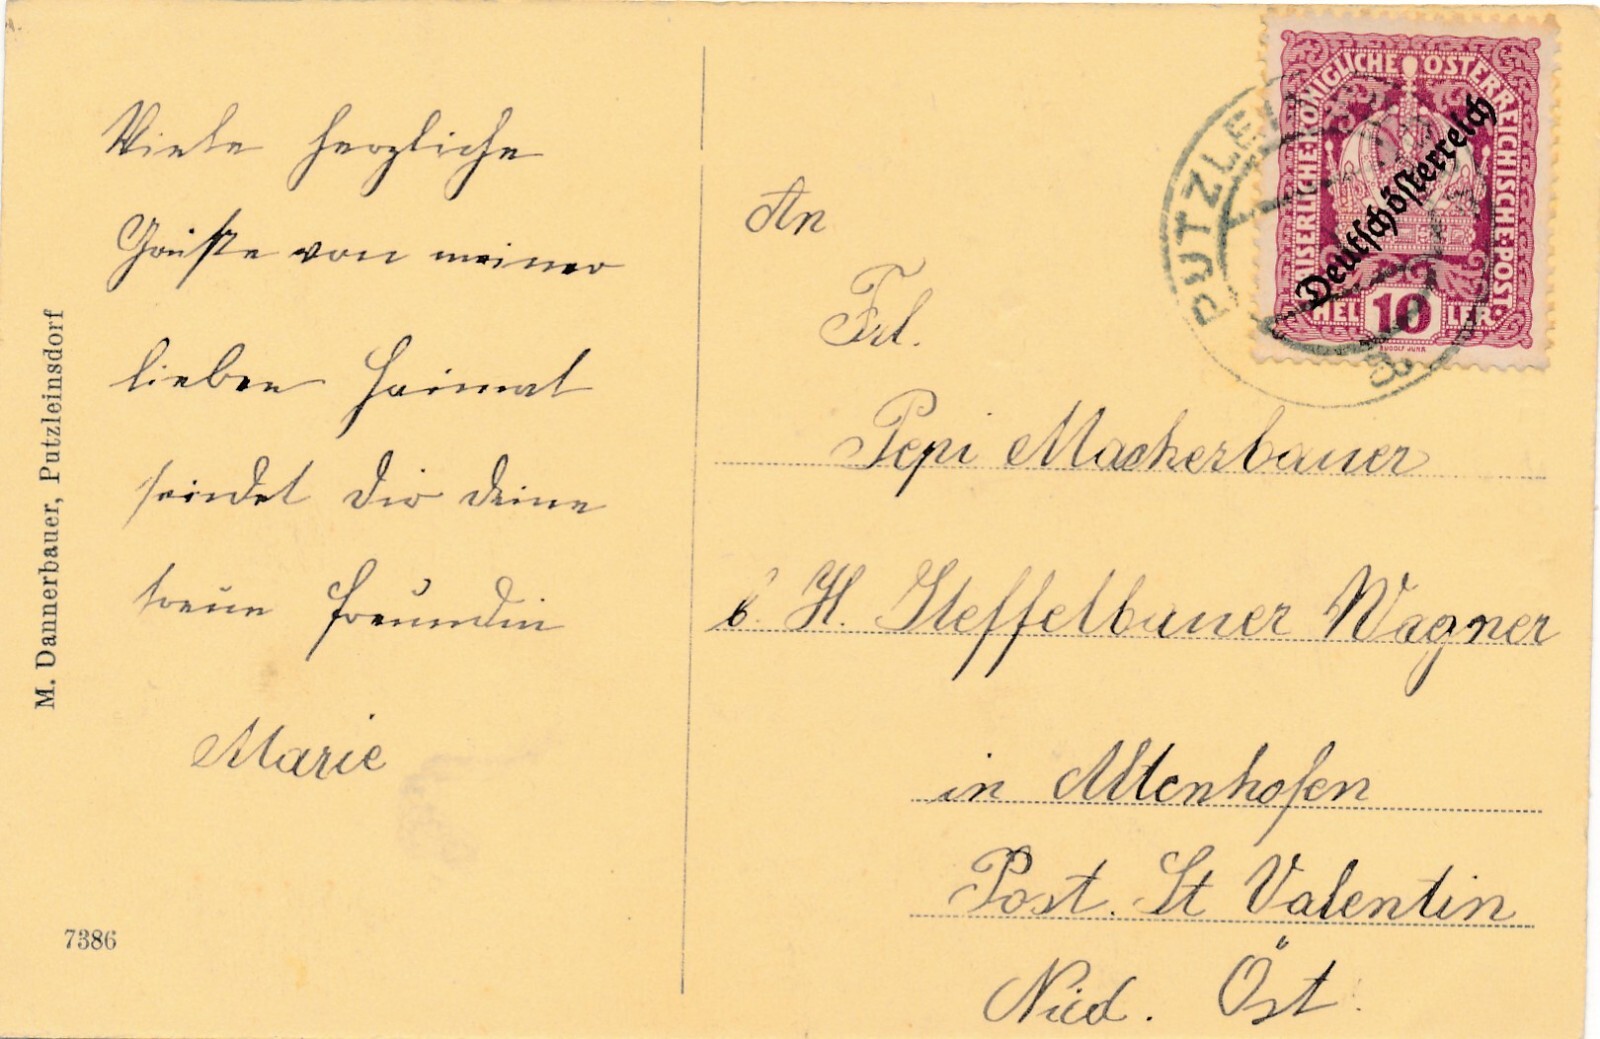 Viele herzliche
Grüße von meiner
lieben Heimat
sendet Dir deine
treue Freundin
Marie
M. Dannerbauer, Putzleinsdorf
7386
KAISERLICHE·KÖNIGLICHE ÖSTERREICHISCHE·POST·
Deutschösterreich
10
HELLER
RUDOLF JUNK
PUTZLEI
An
Frl.
Pepi Mackerbauer
b. H. Steffelbauer Wagner
in Altenhofen
Post. St Valentin
Nied. Öst.